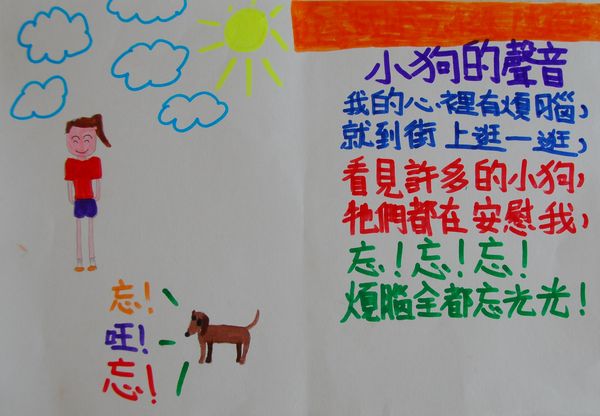 小狗的聲音
我的心裡有煩腦，
就到街上逛一逛，
看見許多的小狗，
牠們都在安慰我，
忘！忘！忘！
煩腦全都忘光光！
忘！
旺！
忘！